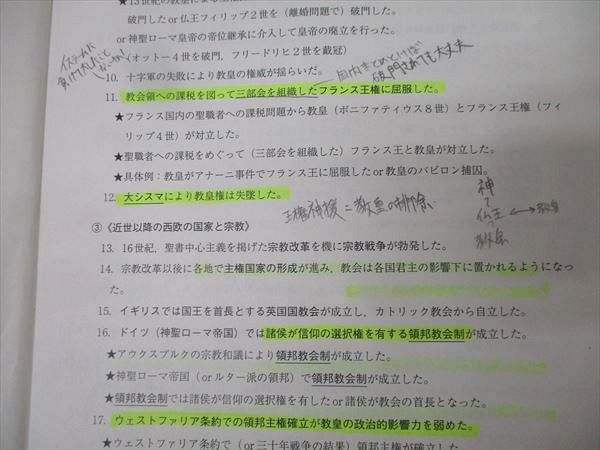 ★13世紀の教皇による
破門した or 仏王フィリップ2世を（離婚問題で）破門した。
or 神聖ローマ皇帝の帝位継承に介入して皇帝の廃立を行った。
（オットー4世を破門，フリードリヒ2世を戴冠）
国内まとめとけば
破門されても大丈夫
10. 十字軍の失敗により教皇の権威が揺らいだ。
11. 教会領への課税を図って三部会を組織したフランス王権に屈服した。
★フランス国内の聖職者への課税問題から教皇（ボニファティウス8世）とフランス王権（フィ
リップ4世）が対立した。
★聖職者への課税をめぐって（三部会を組織した）フランス王と教皇が対立した。
★具体例：教皇がアナーニ事件でフランス王に屈服した or 教皇のバビロン捕囚。
12. 大シスマにより教皇権は失墜した。
王権神授＝教皇の排除
神
仏王
教会
③《近世以降の西欧の国家と宗教》
13. 16世紀，聖書中心主義を掲げた宗教改革を機に宗教戦争が勃発した。
14. 宗教改革以後に各地で主権国家の形成が進み，教会は各国君主の影響下に置かれるようになっ
た。
15. イギリスでは国王を首長とする英国国教会が成立し，カトリック教会から自立した。
16. ドイツ（神聖ローマ帝国）では諸侯が信仰の選択権を有する領邦教会制が成立した。
★アウクスブルクの宗教和議により領邦教会制が成立した。
★神聖ローマ帝国（or ルター派の領邦）で領邦教会制が成立した。
★領邦教会制では諸侯が信仰の選択権を有した or 諸侯が教会の首長となった。
17. ウェストファリア条約での領邦主権確立が教皇の政治的影響力を弱めた。
★ウェストファリア条約で（or 三十年戦争の結果）領邦主権が確立した。